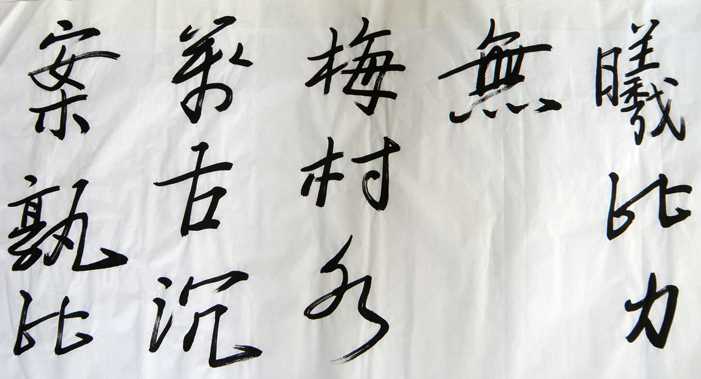 曦比力
無
梅村水
萬古沉
案孰比